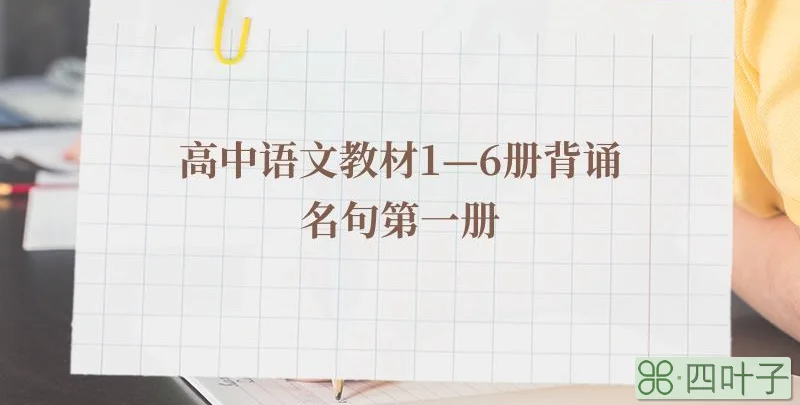 高中语文教材1—6册背诵
名句第一册
四叶子